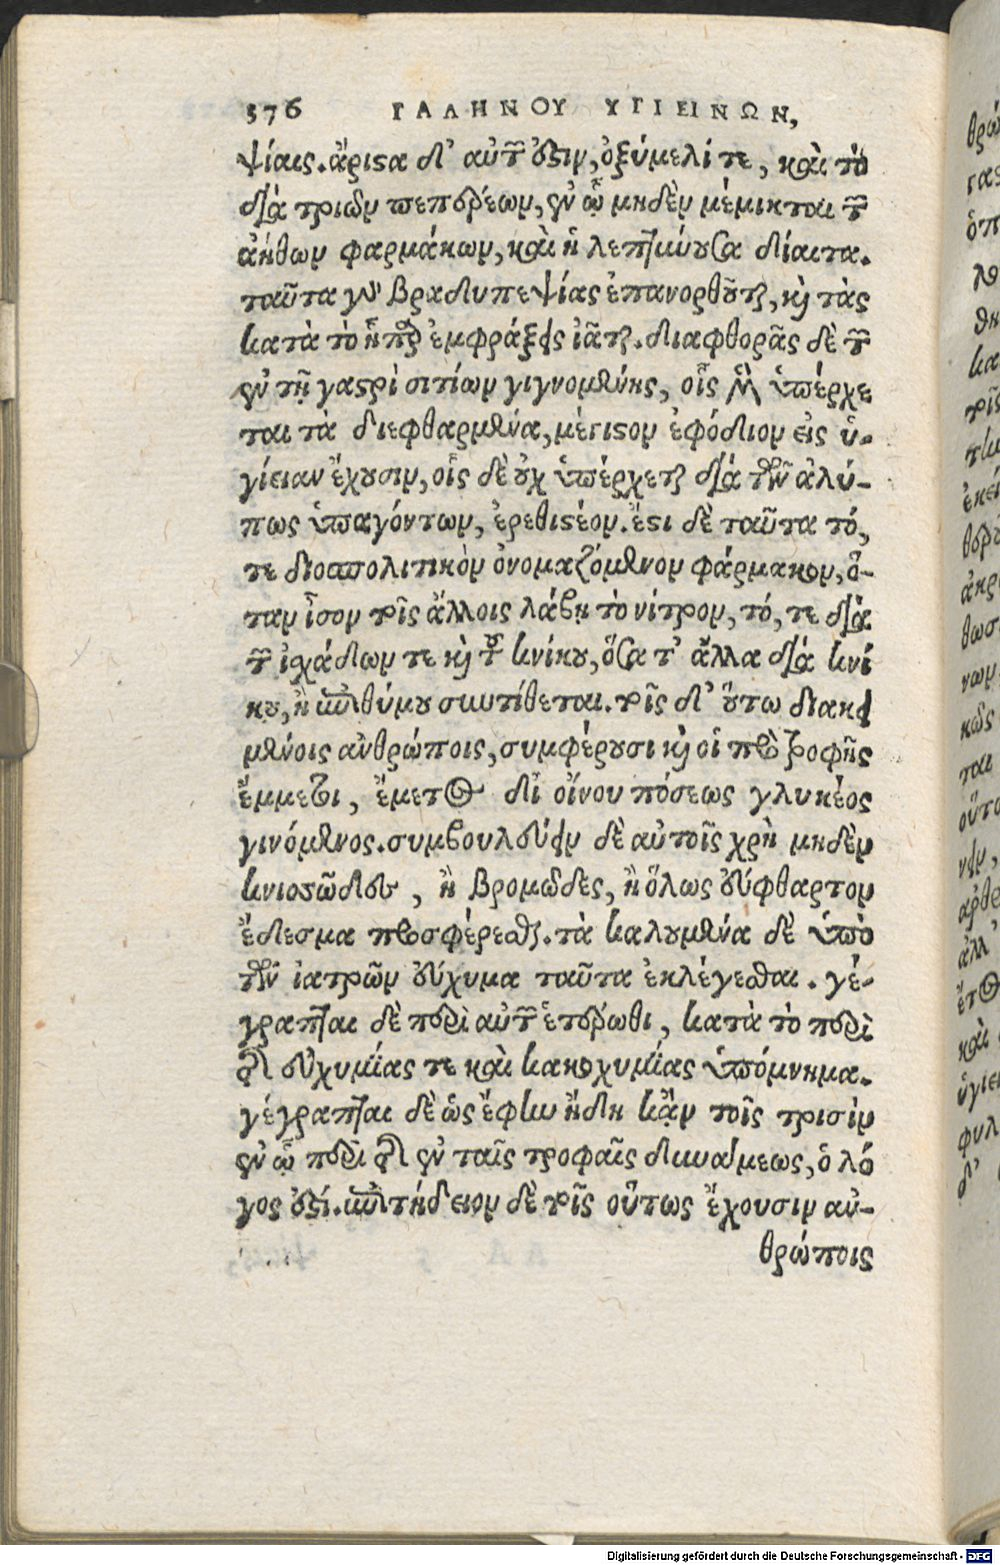 376 ΓΑΛΗΝΟΥ ΥΓΙΕΙΝΩΝ,
ψίαις. ἄριστα δ' αὐτῶν ἐστιν, ὀξύμελί τε, καὶ τὸ
διὰ τριῶν πεπερέων, ἐν ᾧ μηδὲν μέμικται τῶν
ἀήθων φαρμάκων, καὶ ἡ λεπτύνουσα δίαιτα.
ταῦτα γὰρ βραδυπεψίας ἐπανορθοῦται, καὶ τὰς
κατὰ τὸ ἧπαρ ἐμφράξεις ἰᾶται. διαφθορᾶς δὲ τῶν
ἐν τῇ γαστρὶ σιτίων γιγνομένης, οἷς μὲν ὑπέρχε
ται τὰ διεφθαρμένα, μέγιστον ἐφόδιον εἰς ὑ-
γίειαν ἔχουσιν, οἷς δὲ οὐχ ὑπέρχεται διὰ τῶν ἀλύ-
πως ὑπαγόντων, ἐρεθιστέον. ἔστι δὲ ταῦτα τό,
τε διοσπολιτικὸν ὀνομαζόμενον φάρμακον, ὅ-
ταν ἴσον τοῖς ἄλλοις λάβῃ τὸ νίτρον, τό, τε διὰ
τῶν ἰσχάδων τε καὶ τοῦ κνίκου, ὅσα τ' ἄλλα διὰ κνί
κου, ἢ ἐπιθύμου συντίθεται. τοῖς δ' οὕτω διακει
μένοις ἀνθρώποις, συμφέρουσι καὶ οἱ πρὸ τροφῆς
ἔμμετοι, ἔμετος δι οἴνου πόσεως γλυκέος
γινόμενος. συμβουλεύειν δὲ αὐτοῖς χρὴ μηδὲν
κνισσῶδες, ἢ βρομῶδες, ἢ ὅλως εὔφθαρτον
ἔδεσμα προσφέρεσθαι. τὰ καλουμένα δὲ ὑπὸ
τῶν ἰατρῶν εὔχυμα ταῦτα ἐκλέγεσθαι. γέ-
γραπται δὲ περὶ αὐτῶν ἑτέρωθι, κατὰ τὸ περὶ
τῆς εὐχυμίας τε καὶ κακοχυμίας ὑπόμνημα.
γέγραπται δὲ ὡς ἔφην ἤδη κᾂν τοῖς τρισὶν
ἐν ᾧ περὶ τῆς ἐν ταῖς τροφαῖς δυνάμεως, ὁ λό
γος ἐστί. ἐπιτήδειον δὲ τοῖς οὕτως ἔχουσιν αν-
θρώποις
Digitalisierung gefördert durch die Deutsche Forschungsgemeinschaft - DFG